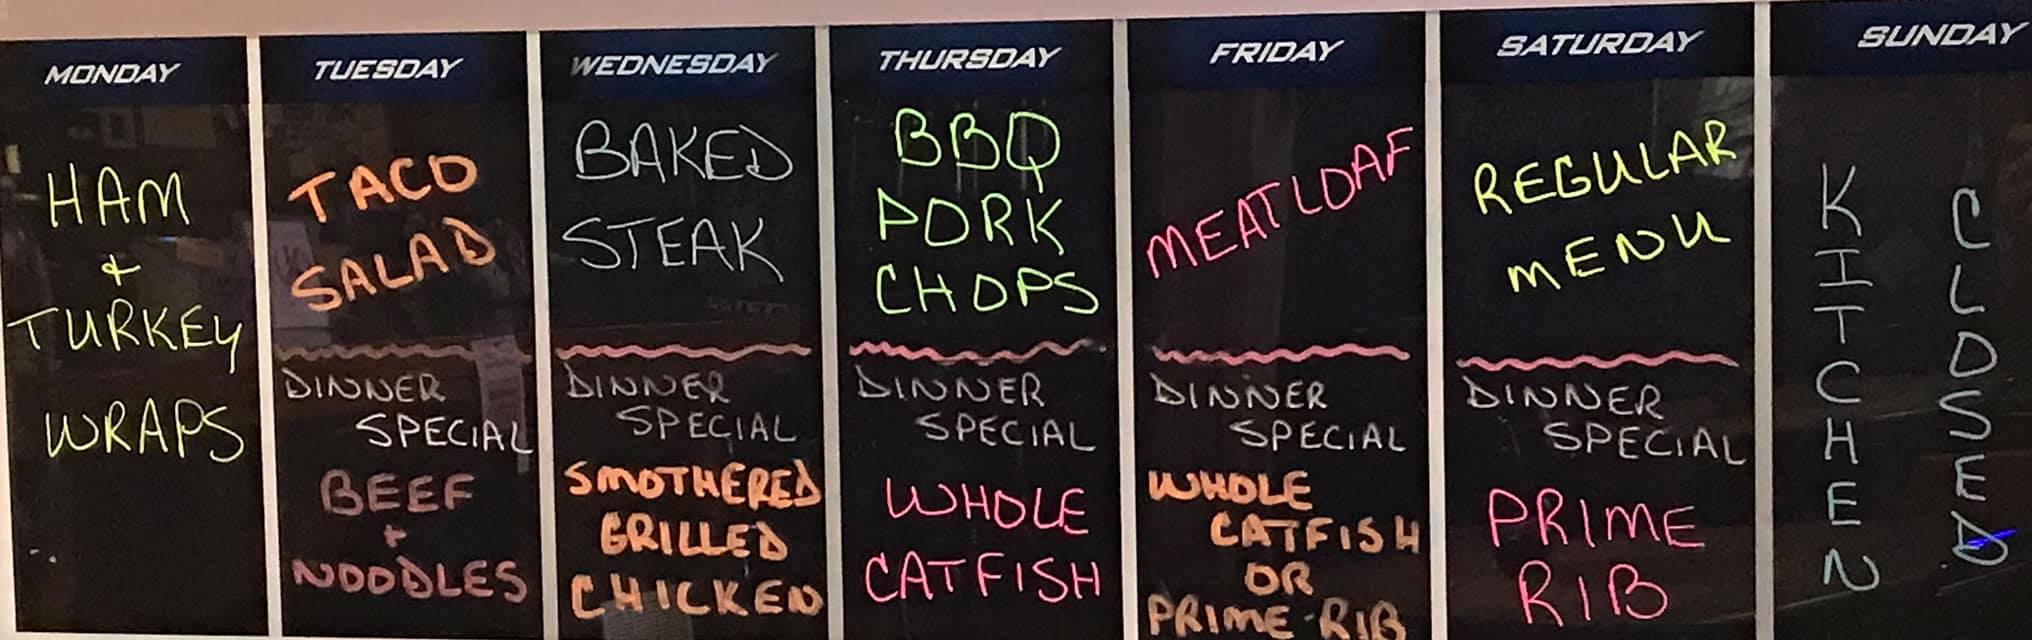 MONDAY
HAM
+
TURKEY
WRAPS
TUESDAY
TACO
SALAD
DINNER
SPECIAL
BEEF
+
NOODLES
WEDNESDAY
BAKED
STEAK
DINNER
SPECIAL
SMOTHERED
GRILLED
CHICKEN
THURSDAY
BBQ
PORK
CHOPS
DINNER
SPECIAL
WHOLE
CATFISH
FRIDAY
MEATLOAF
DINNER
SPECIAL
WHOLE
CATFISH
OR
PRIME RIB
SATURDAY
REGULAR
MENU
DINNER
SPECIAL
PRIME
RIB
SUNDAY
KITCHEN
CLOSED